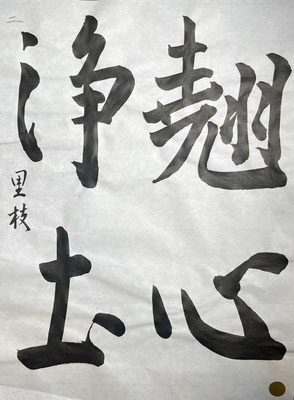 翹心
浄土
二
里枝